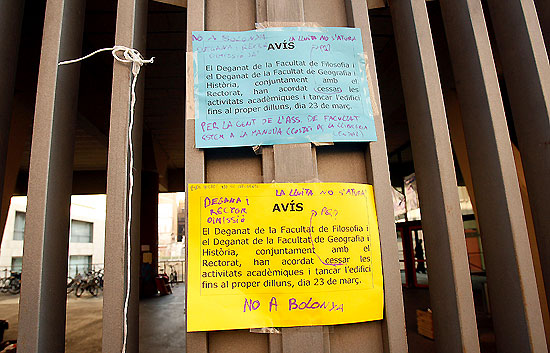 NO A BOLONYA LA LLUITA NO S'ATURA
DEGANA I
DIMISSIÓ
AVÍS
El Deganat de la Facultat de Filosofia i
el Deganat de la Facultat de Geografia i
Història, conjuntament amb el
Rectorat, han acordat cessar les
activitats acadèmiques i tancar l'edifici
fins al proper dilluns, dia 23 de març.
PER LA GENT DE L'ASS. DE FACULTAT
ESTEM A LA
LA LLUITA NO S'ATURA
DEGANA i
RECTOR
DIMISSIÓ
AVÍS
El Deganat de la Facultat de Filosofia i
el Deganat de la Facultat de Geografia i
Història, conjuntament amb el
Rectorat, han acordat cessar les
activitats acadèmiques i tancar l'edifici
fins al proper dilluns, dia 23 de març.
NO A BOLONYA